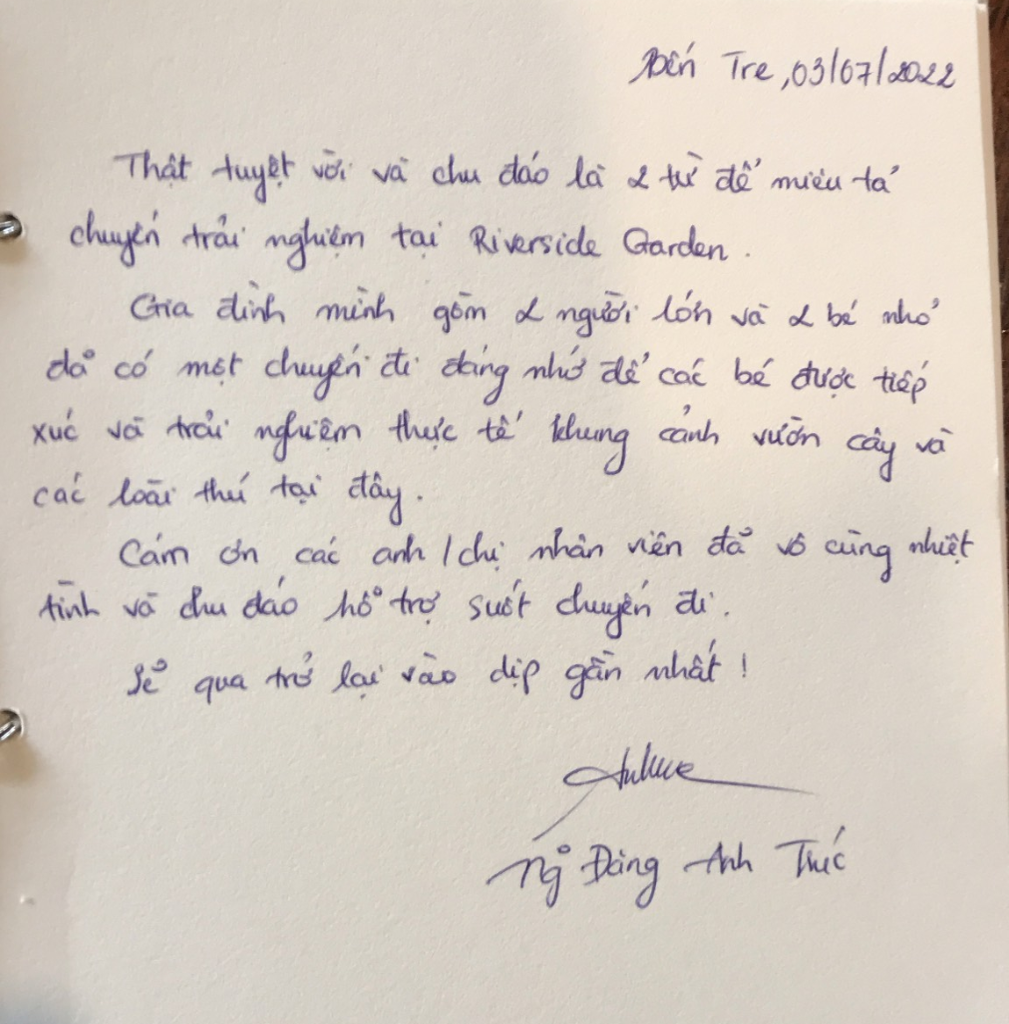 Bến Tre, 03/07/2022
Thật tuyệt vời và chu đáo là 2 từ để miêu tả
chuyến trải nghiệm tại Riverside Garden.
Gia đình mình gồm 2 người lớn và 2 bé nhỏ
đã có một chuyến đi đáng nhớ để các bé được tiếp
xúc và trải nghiệm thực tế khung cảnh vườn cây và
các loài thú tại đây.
Cám ơn các anh/chị nhân viên đã vô cùng nhiệt
tình và chu đáo hỗ trợ suốt chuyến đi.
Sẽ qua trở lại vào dịp gần nhất!
Ng Đàng Anh Thức